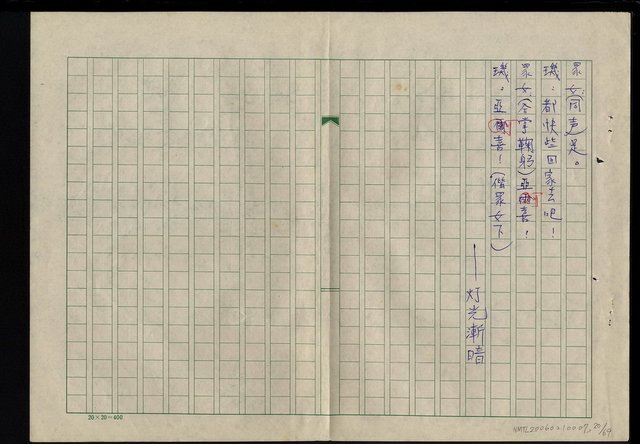 眾女(同声)是。
璣:都快些回家去吧!
眾女(合掌鞠躬)亞喜!
璣:亞喜!(偕眾女下)
——灯光漸暗
20×20=400
NMTL20060210007, 20/69